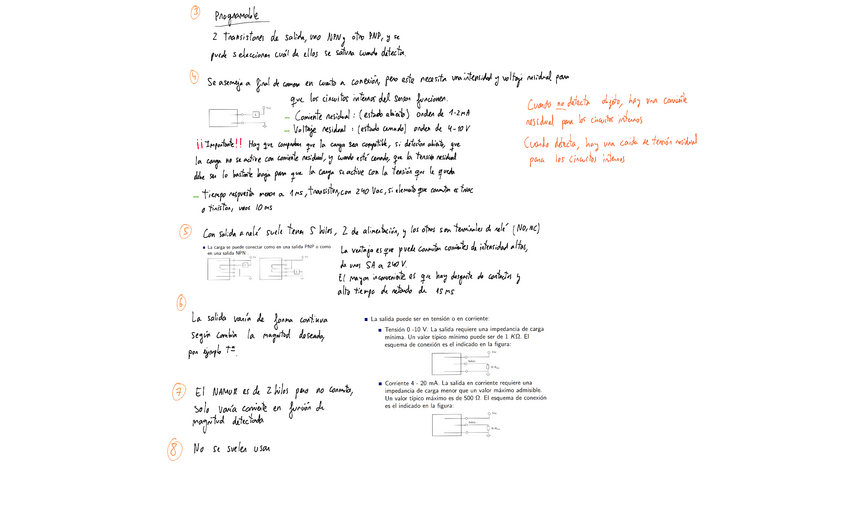 3 Programable
2 transistores de salida, uno NPN y otro PNP, y se
puede seleccionar cuál de ellos se satura cuando detecta.
4 Se asemeja a final de carrera en cuanto a conexión, pero este necesita una intensidad y voltaje residual para
que los circuitos internos del sensor funcionen.
– Corriente residual: (estado abierto) orden de 1-2 mA
– Voltaje residual: (estado cerrado) orden de 4-10 V
¡¡Importante!! Hay que comprobar que la carga sea compatible, si detector abierto, que
la carga no se active con corriente residual, y cuando esté cerrado, que la tensión residual
debe ser lo bastante baja para que la carga se active con la tensión que le queda
– Tiempo respuesta menor a 1 ms, transistor, con 240 Vac, si elemento que conmuta es triac
o tiristor, unos 10 ms
Cuando no detecta objeto, hay una corriente
residual para los circuitos internos
Cuando detecta, hay una caída de tensión residual
para los circuitos internos
5 Con salida a relé suele tener 5 hilos, 2 de alimentación, y los otros son terminales de relé (NO, NC)
La carga se puede conectar como en una salida PNP o como
en una salida NPN
La ventaja es que puede conmutar corrientes de intensidad altas,
de unos 5A a 240 V.
El mayor inconveniente es que hay desgaste de contactos y
alto tiempo de retardo de 15 ms
6
La salida varía de forma continua
según cambia la magnitud deseada,
por ejemplo Tª.
La salida puede ser en tensión o en corriente:
Tensión 0 -10 V. La salida requiere una impedancia de carga
mínima. Un valor típico mínimo puede ser de 1 KΩ. El
esquema de conexión es el indicado en la figura:
Corriente 4 - 20 mA. La salida en corriente requiere una
impedancia de carga menor que un valor máximo admisible.
Un valor típico máximo es de 500 Ω. El esquema de conexión
es el indicado en la figura:
7 El NAMUR es de 2 hilos pero no conmuta,
solo varía corriente en función de
magnitud detectada
8 No se suelen usar